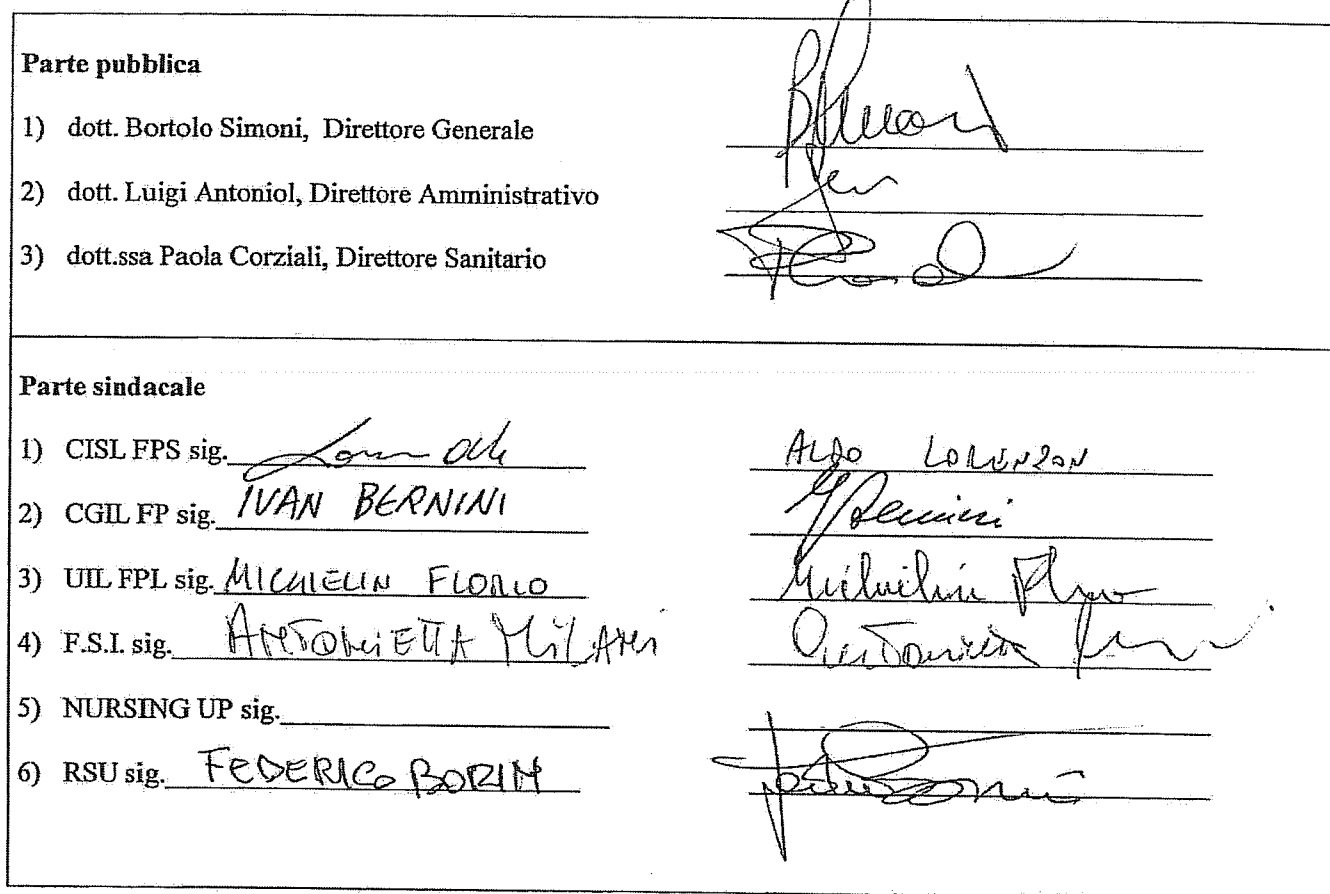 Parte pubblica
1) dott. Bortolo Simoni, Direttore Generale
2) dott. Luigi Antoniol, Direttore Amministrativo
3) dott.ssa Paola Corziali, Direttore Sanitario
Parte sindacale
1) CISL FPS sig. ALDO LORENZON
2) CGIL FP sig. IVAN BERNINI
3) UIL FPL sig. MICHIELIN FLORIO
4) F.S.I. sig. ANTONIETTA MILANI
5) NURSING UP sig.
6) RSU sig. FEDERICO BORIN